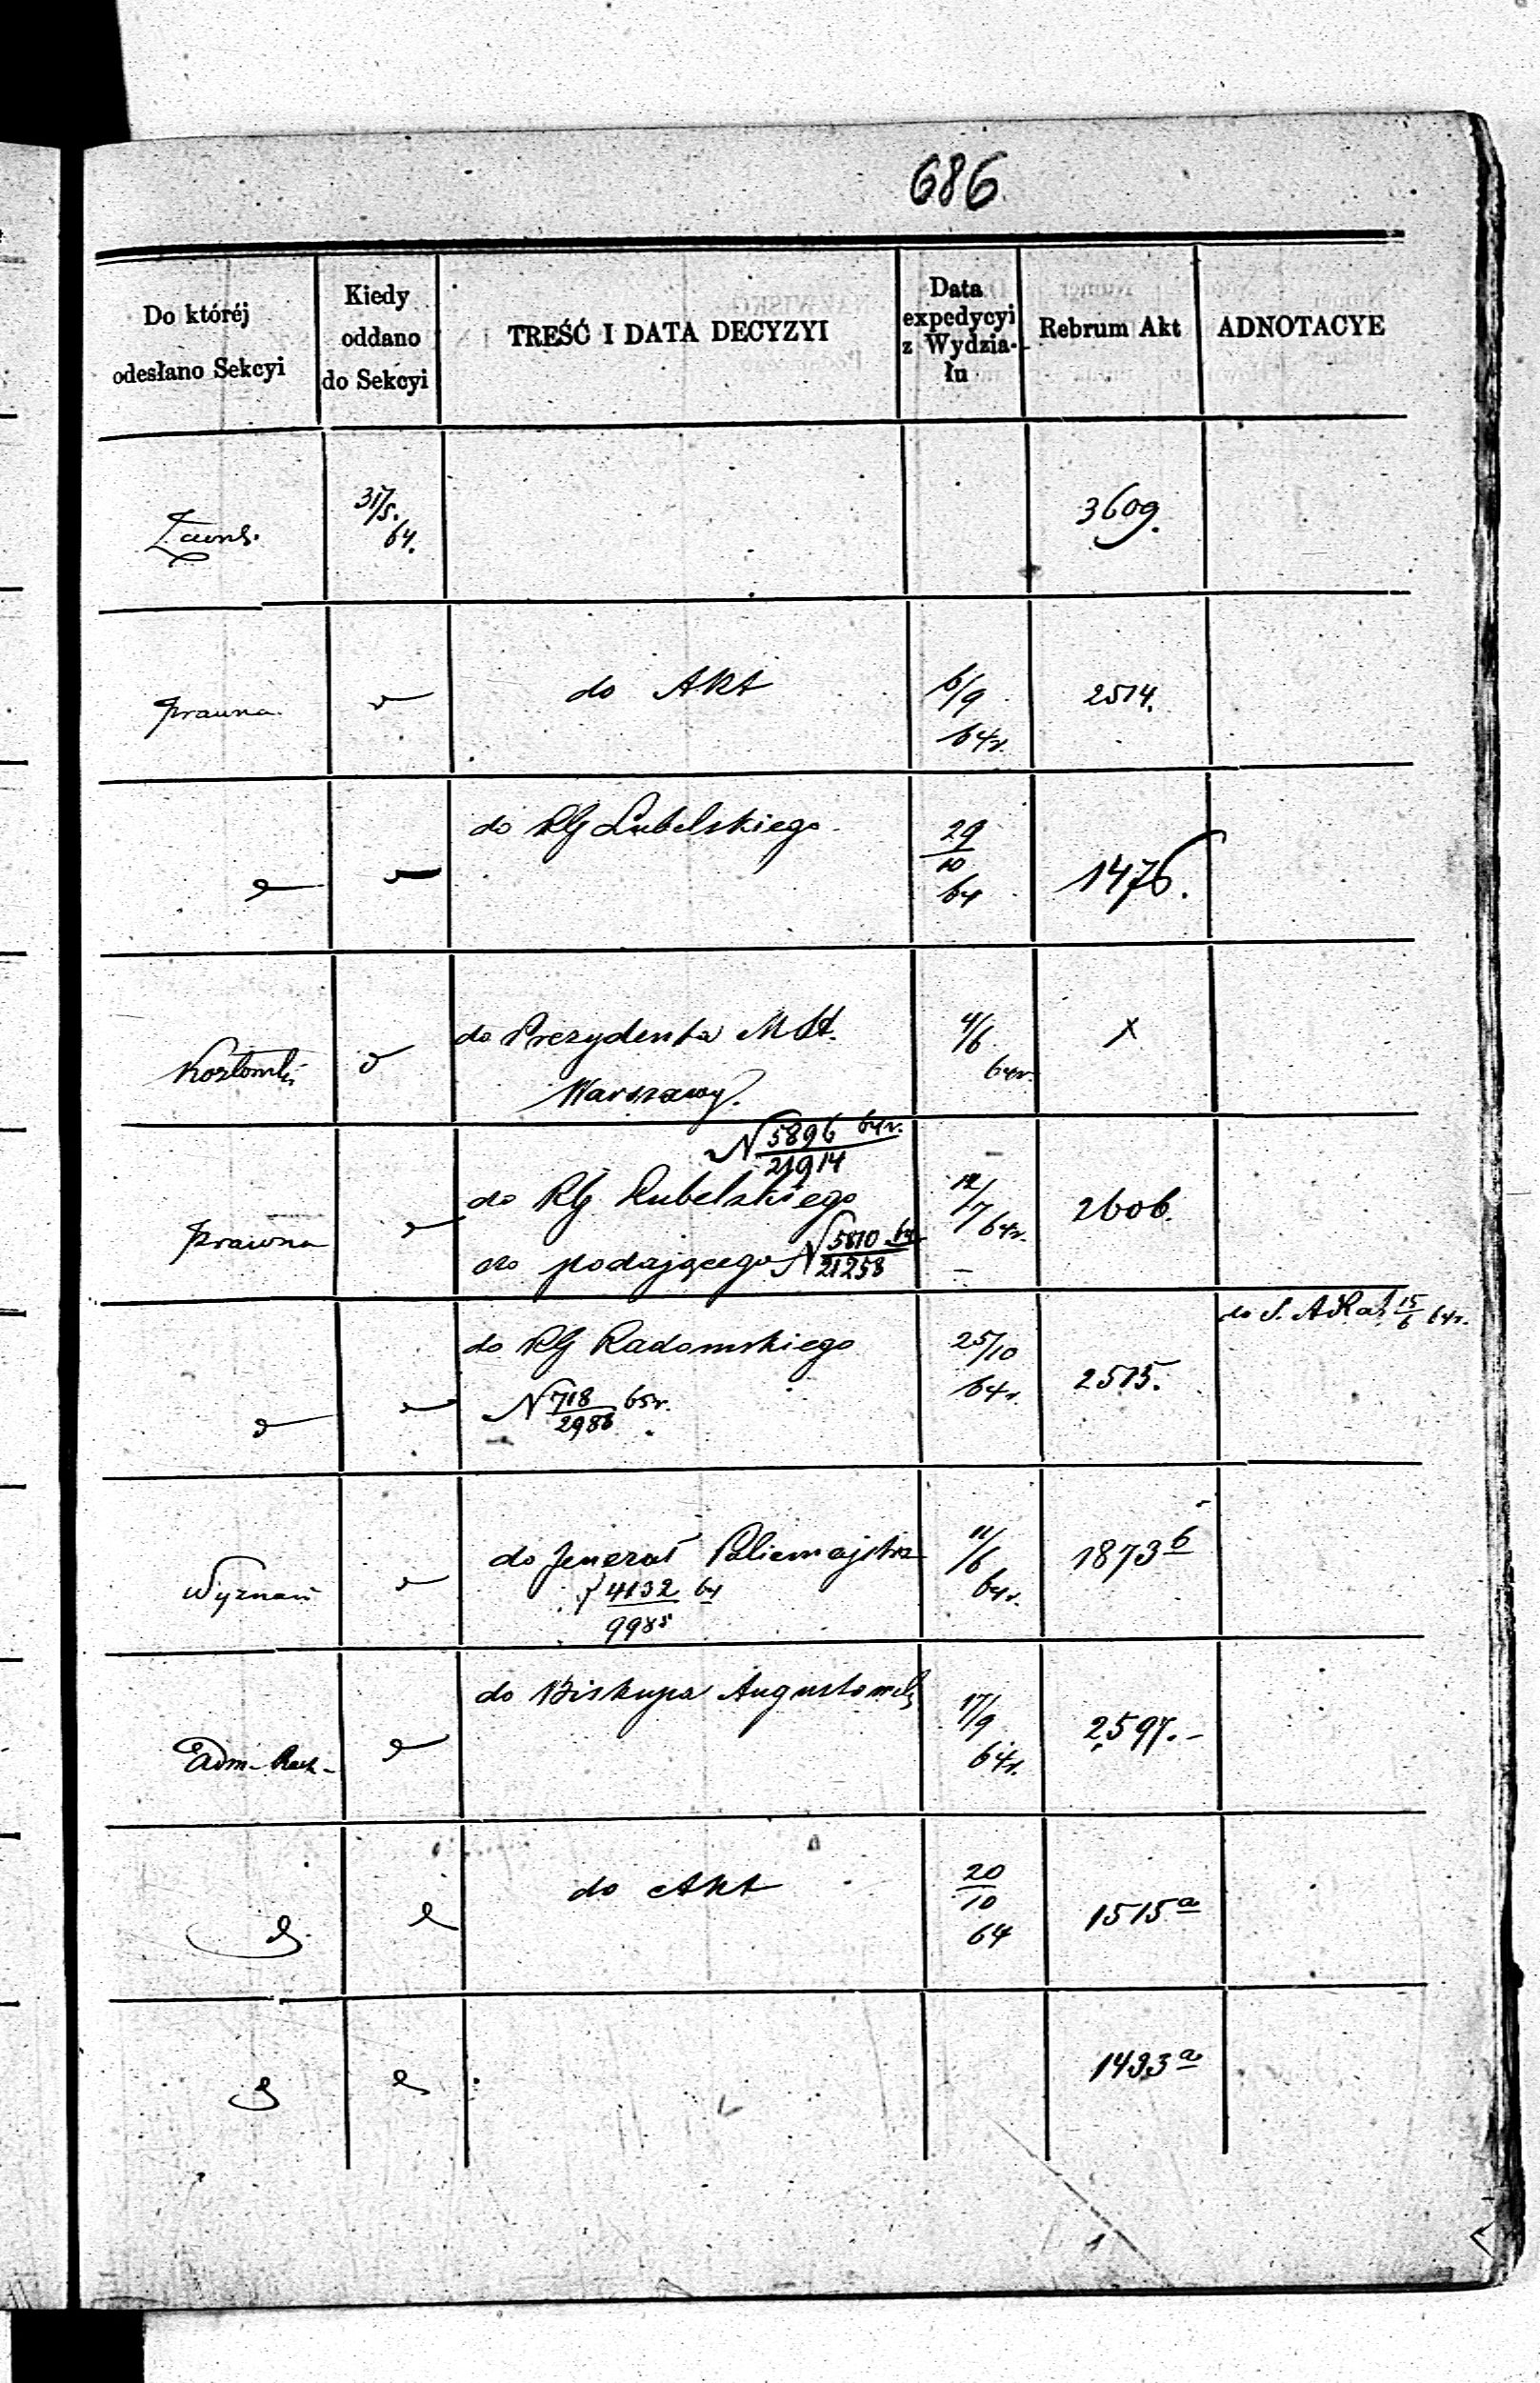 686
Do któréj odesłano Sekcyi
Kiedy oddano do Sekcyi
TREŚĆ I DATA DECYZYI
Data expedycyi z Wydzia-łu
Rebrum Akt
ADNOTACYE
31/5. 64.
3609.
Prawna
do Akt
6/9 64r.
2514.
do RG Lubelskiego
29/10 64
1476.
do Prezydenta M St.
Warszawy.
4/6 64r.
X
N 5896/21914 64r.
Prawna
do RG Lubelskiego
12/7 64r.
2606.
do podającego N 5810/21258 64
do RG Radomskiego
25/10 64r.
2515.
do S. A Rah 15/6 64r.
N 718/2986 65r.
Wyznań
do Jenerał Policmajstra
11/6 64r.
1873 b
4132/9985 64
Adm-Rach-
do Biskupa Augustowsk
17/9 64r.
2597.-
do Akt
20/10 64
1515 a
1433 a